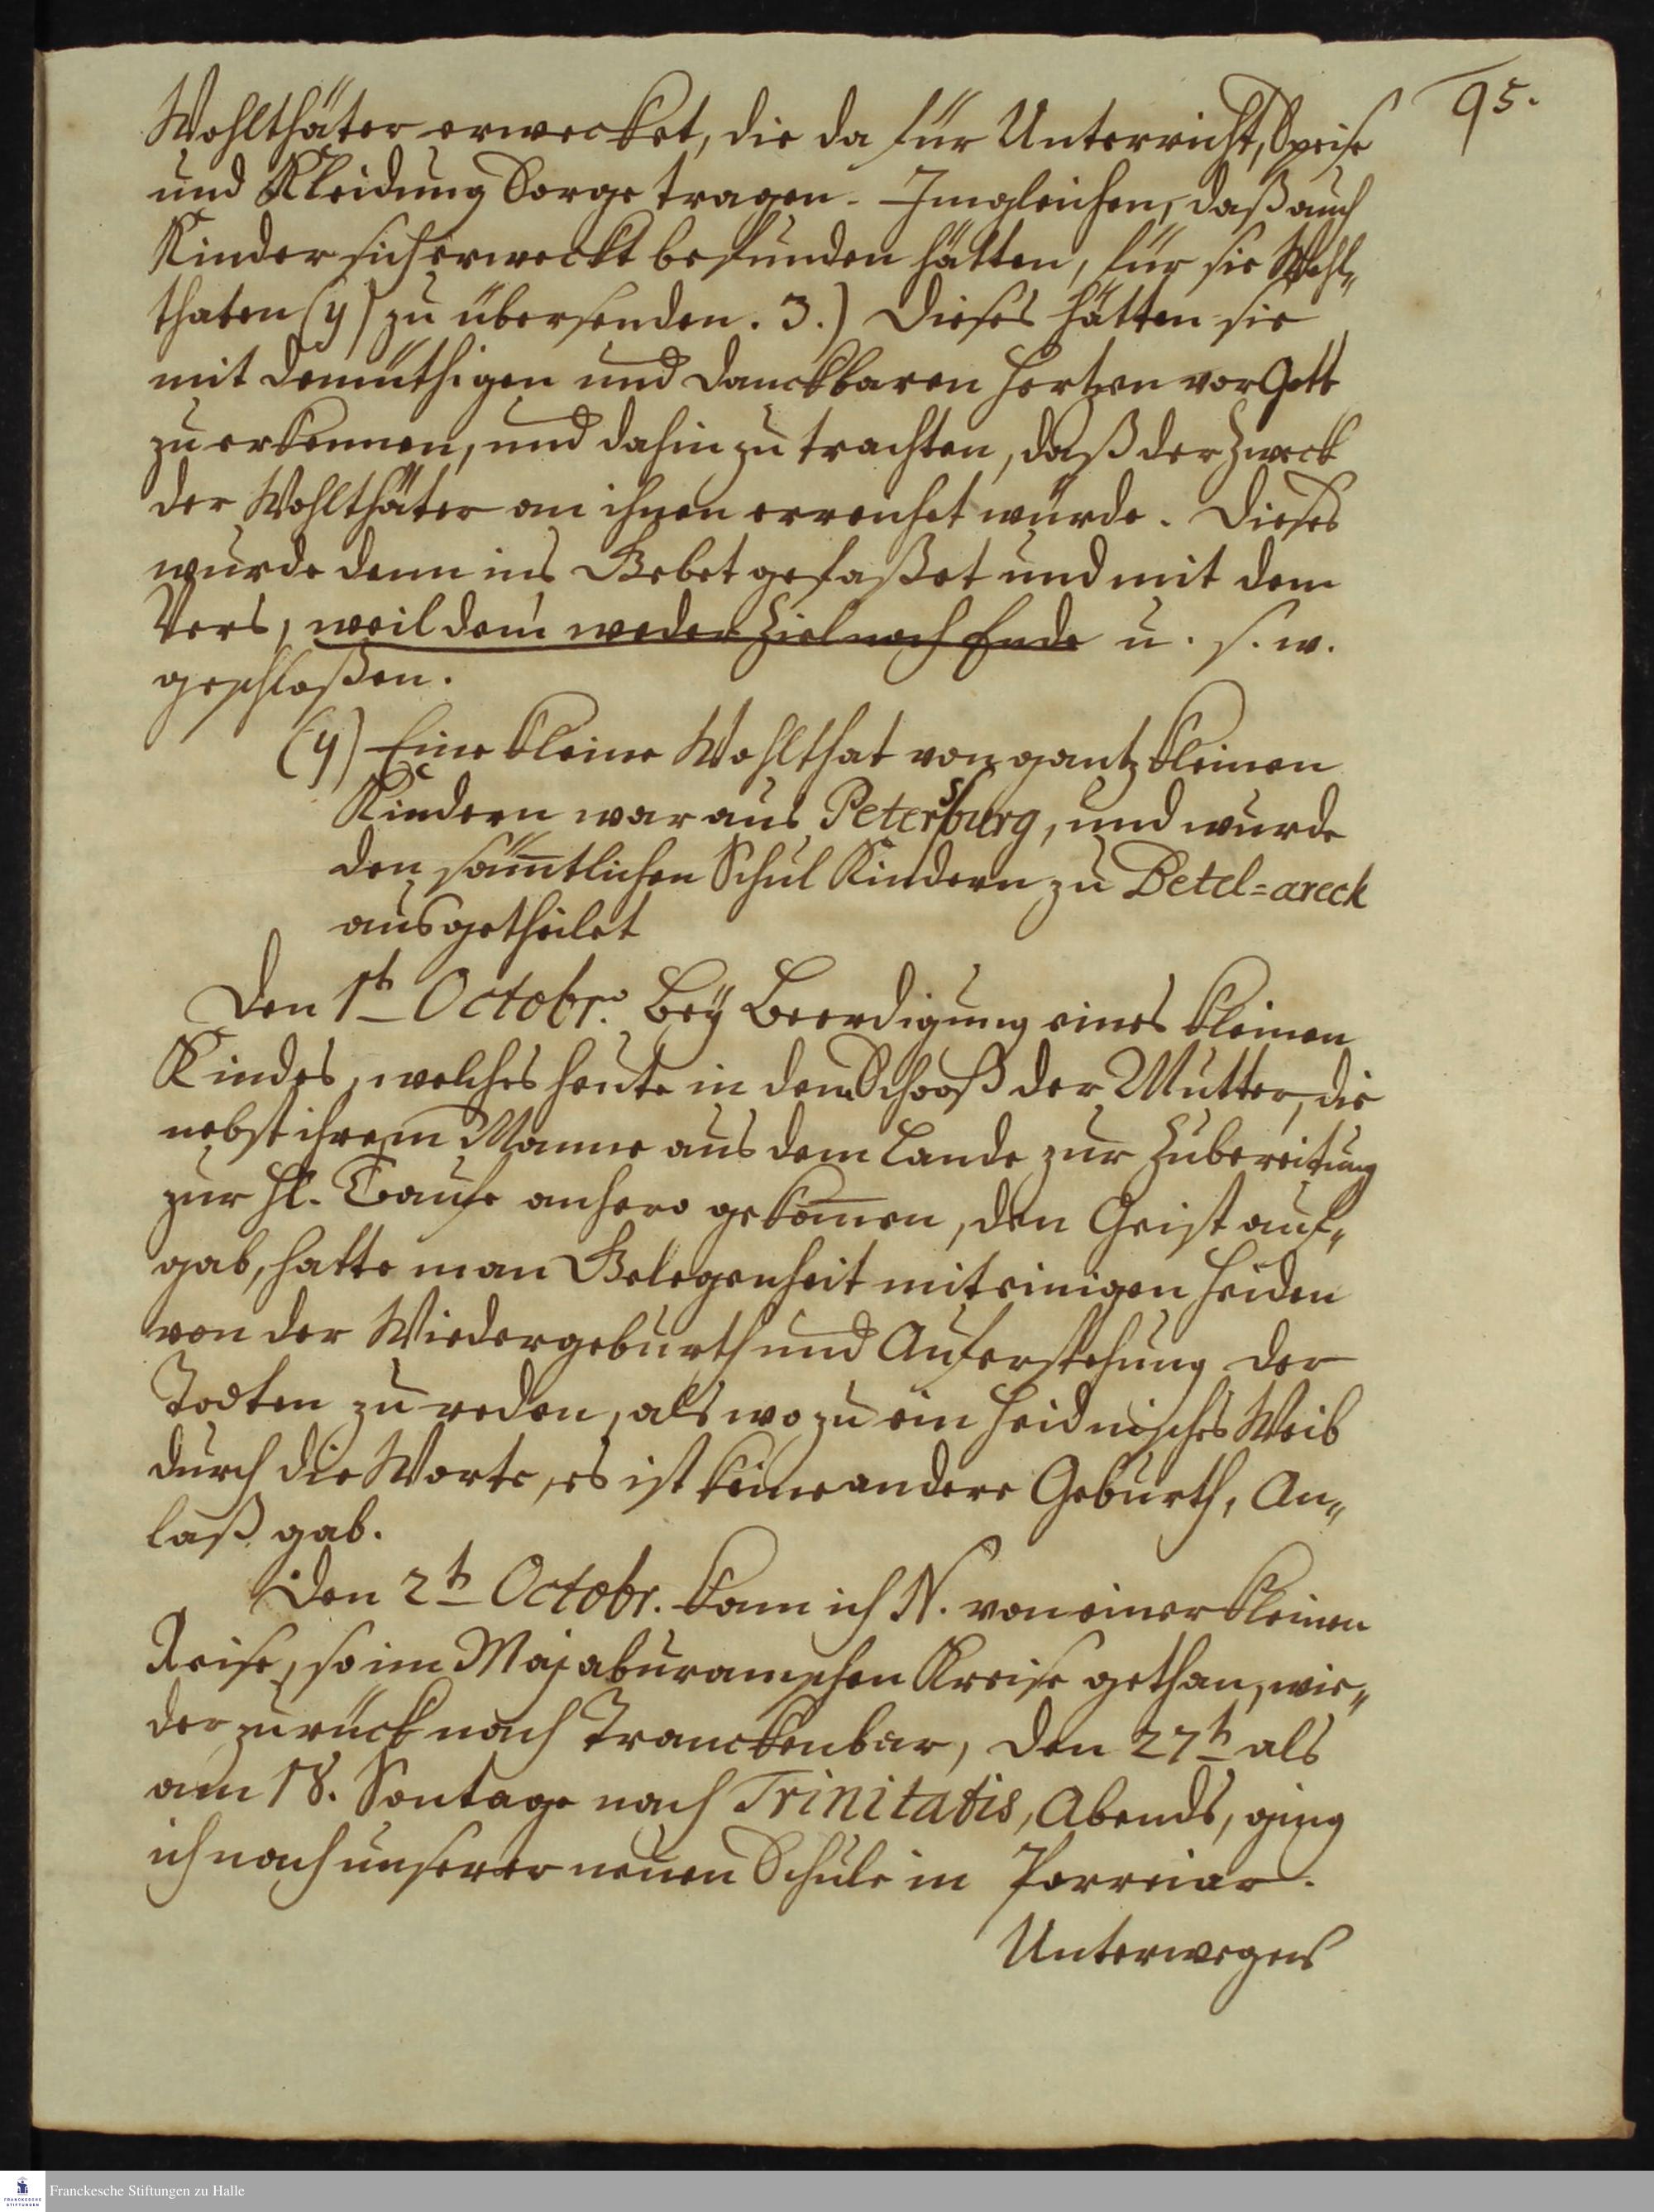 95.
Wohlthäter erwecket, die da für Unterricht, Speise
und Kleidung Sorge tragen. Imgleichen, daß auch
Kinder sich erweckt befunden hätten, für sie Wohl„
thaten (y) zu übersenden. 3.) Dieses hätten sie
mit demüthigen und danckbaren Hertzen vor Gott
zu erkennen, und dahin zu trachten, daß der Zweck
der Wohlthäter an ihnen erreichet würde. Dieses
wurde denn ins Gebet gefaßet und mit dem
Vers, weil denn weder Ziel noch Ende u. s. w.
geschloßen.
(y) Eine kleine Wohlthat von gantz kleinen
Kindern war aus Petersburg, und wurde
den sämtlichen Schul Kindern zu Betel=areck
ausgetheilet
Den 1t Octobr. Bey Beerdigung eines kleinen
Kindes, welches heute in dem Schooß der Mutter, die
nebst ihrem Manne aus dem Lande zur Zubereitung
zur Hl. Taufe anhero gekomen, den Geist auf„
gab, hatte man Gelegenheit mit einigen Heiden
von der Wiedergeburth und Auferstehung der
Todten zu reden, als wozu ein Heidnisches Weib
durch die Worte, es ist keine andere Geburth, An„
laß gab.
Den 2t Octobr. kam ich N. von einer kleinen
Reise, so im Majaburamschen Kreise gethan, wie„
der zurück nach Tranckenbar, den 27t als
am 18. Sontage nach Trinitatis, Abends, ging
ich nach unserer neuen Schule in Porreiar.
Unterwegens
Franckesche Stiftungen zu Halle
FRANCKESCHE
STIFTUNGEN